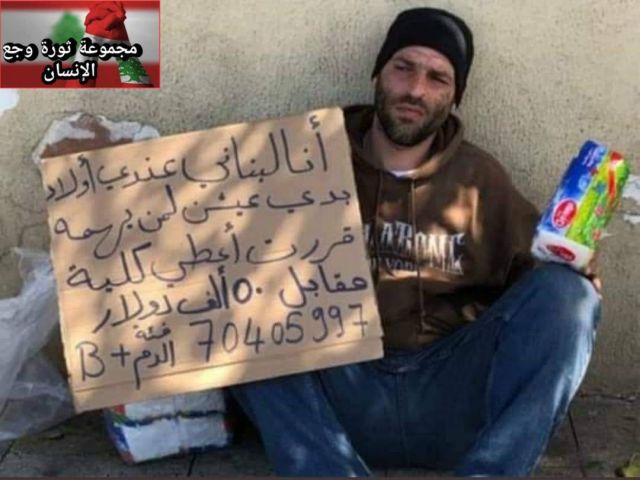 مجموعة ثورة وجع
الإنسان
أنا لبناني عندي أولاد
بدي عيشن لمن يهمه
قررت أعطي كلية
مقابل ٥٠ ألف دولار
70405997 فئة الدم B+